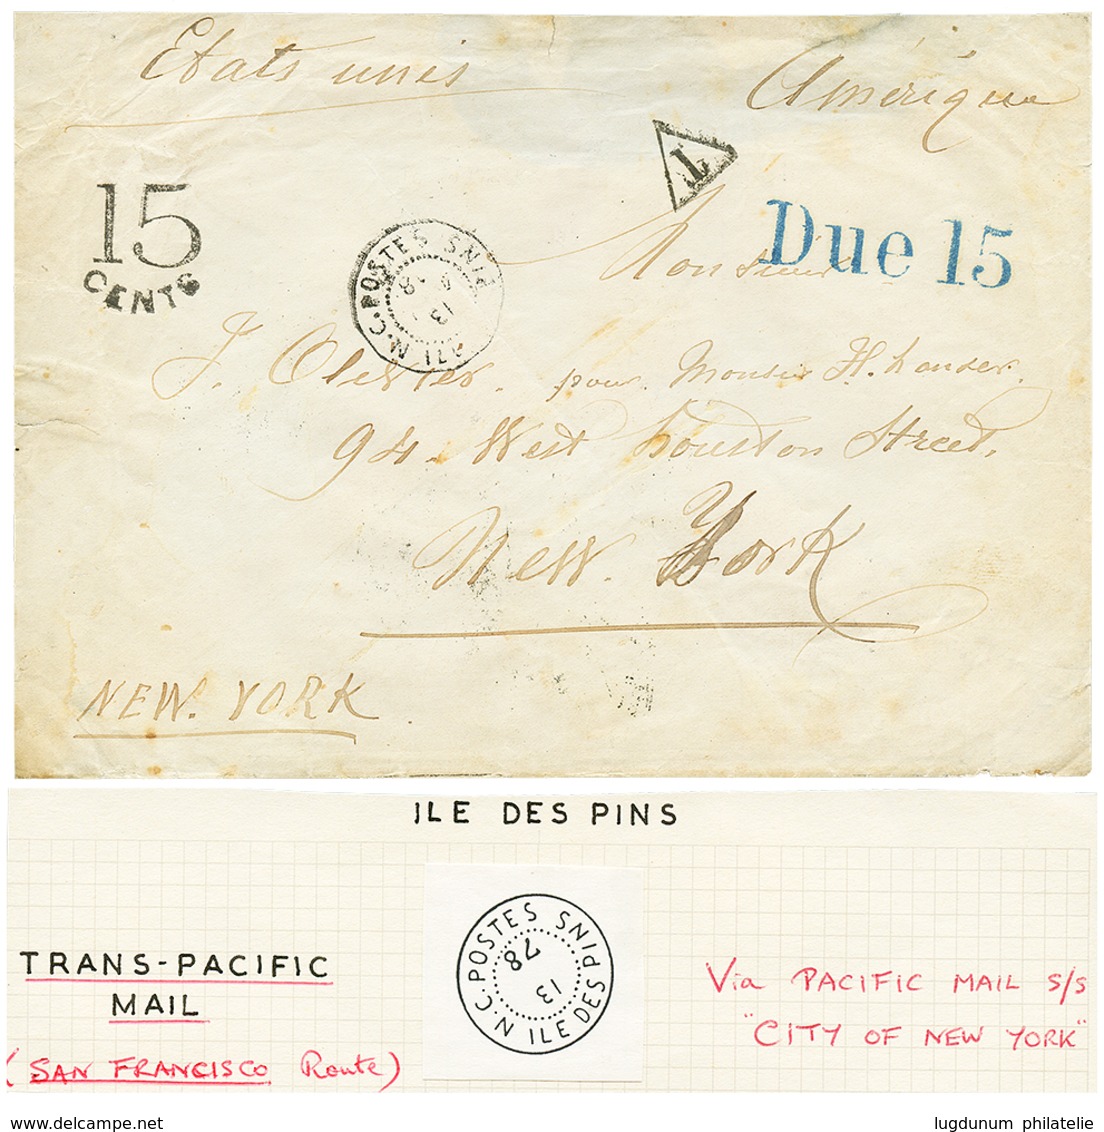 Etats unis Amérique
T
15
CENTS
Due 15
N.C. POSTES ILE PINS
13
78
Monsieur
J. Olivier. pour Monsieur H. hanser.
94. West houston Street.
New. York
NEW. YORK
ILE DES PINS
N.C. POSTES ILE DES PINS
13
78
TRANS-PACIFIC
MAIL
(SAN FRANCISCO Route)
Via PACIFIC MAIL S/S
"CITY OF NEW YORK"
lugdunum philatelie